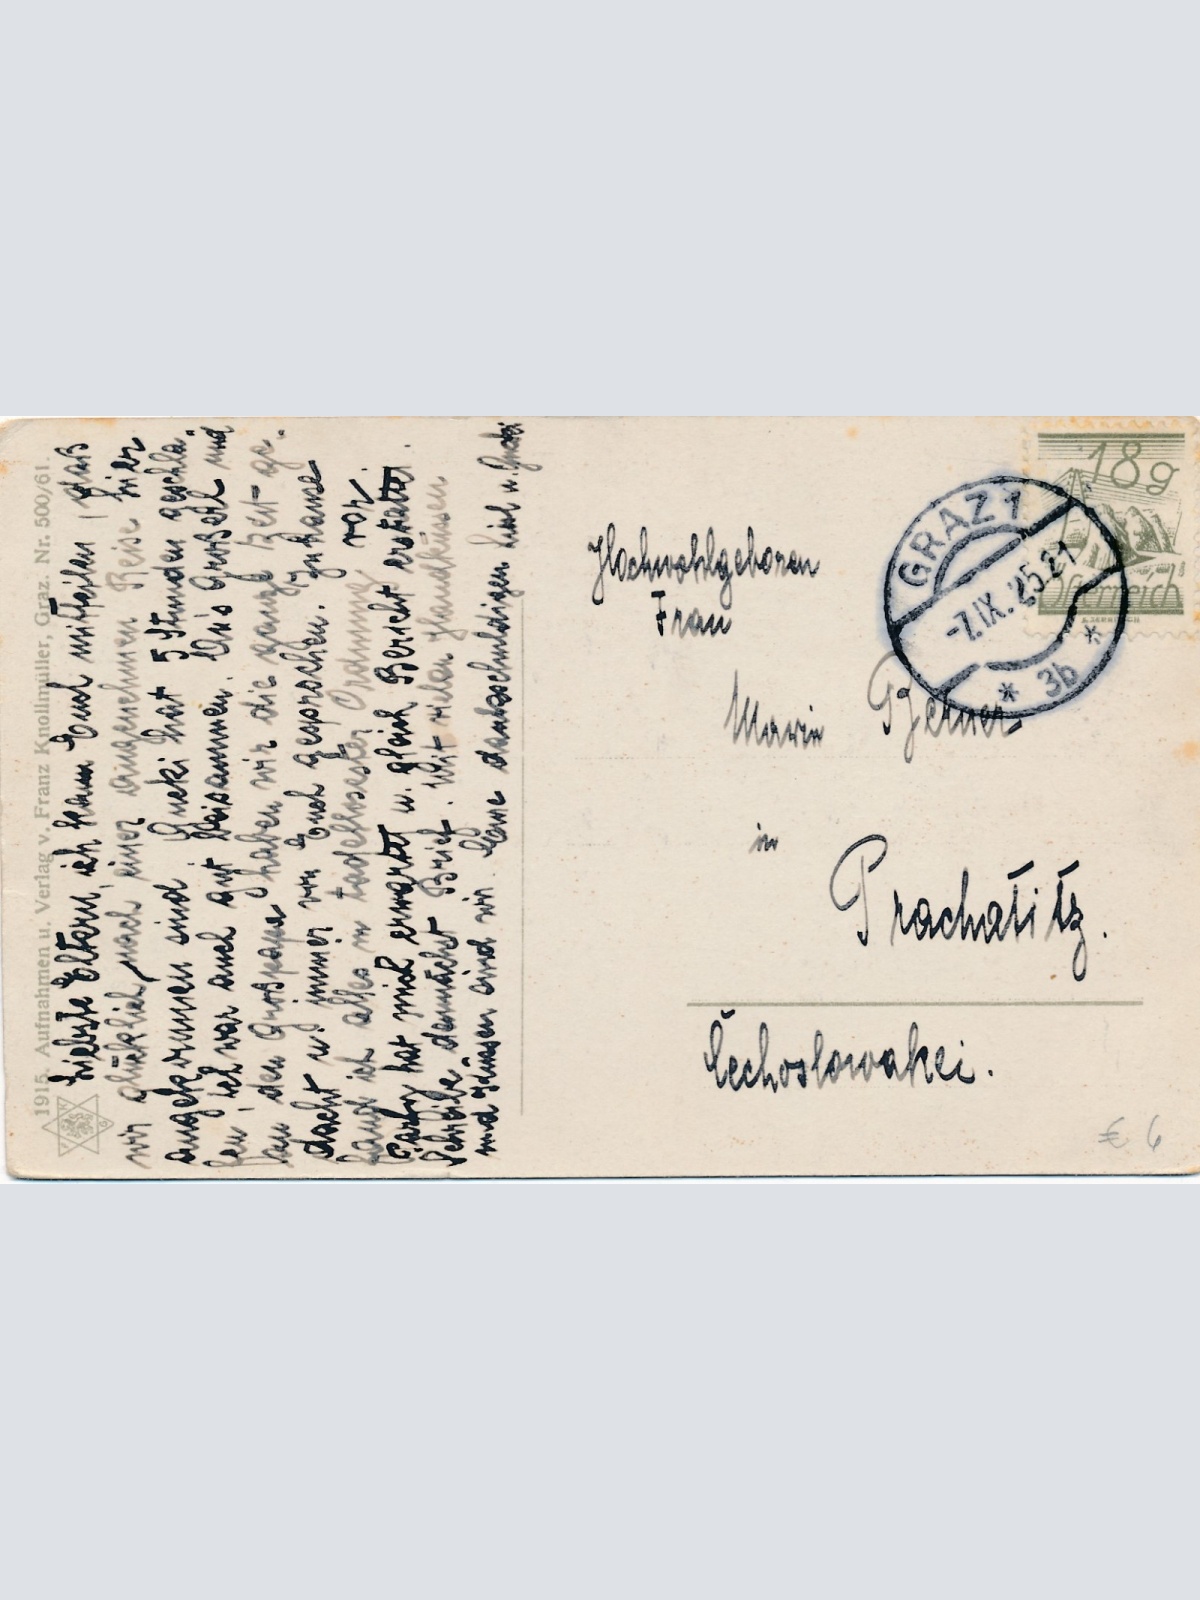 1915. Aufnahmen u. Verlag v. Franz Knollmüller, Graz. Nr. 500/61.
Liebste Eltern, ich kann Euch mitteilen, daß
wir glücklich nach einer angenehmen Reise hier
angekommen sind. hat 5 Stunden geschla-
fen, ich war auch gut beisammen. Großerl und
den Grosspapa haben wir die ganze Zeit ge-
dacht u. immer von Euch gesprochen. Zuhause
fand ich alles in tadelloser Ordnung vor.
hat mich erwartet u. gleich Bericht erstattet.
Schreibe demnächst Brief. Mit vielen Handküssen
und Küssen sind wir Eure dankschuldigen
Hochwohlgeboren
Frau
Marie
in
Prachatitz.
Čechoslovakei.
18g
Österreich
GRAZ 1
-7.IX.25.21
* 3b *
€ 6